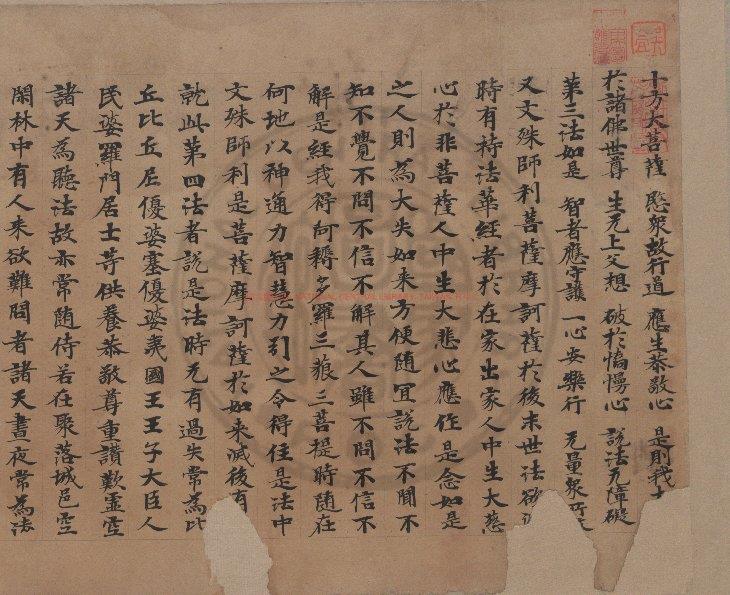 十方大菩薩 愍衆故行道 應生恭敬心 是則我大
於諸佛世尊 生无上父想 破於憍慢心 說法无障礙
第三法如是 智者應守護 一心安樂行 无量衆所
又文殊師利菩薩摩訶薩於後末世法欲
時有持法華經者於在家出家人中生大慈
心於非菩薩人中生大悲心應作是念如是
之人則為大失如來方便随冝說法不聞不
知不覺不問不信不解其人雖不問不信不
解是經我得阿耨多羅三藐三菩提時随在
何地以神通力智慧力引之令得住是法中
文殊師利是菩薩摩訶薩於如來滅後有
就此第四法者說是法時无有過失常為比
丘比丘尼優婆塞優婆夷國王王子大臣人
民婆羅門居士等供養恭敬尊重讃歎虛空
諸天為聽法故亦常随侍若在聚落城邑空
閑林中有人来欲難問者諸天晝夜常為法